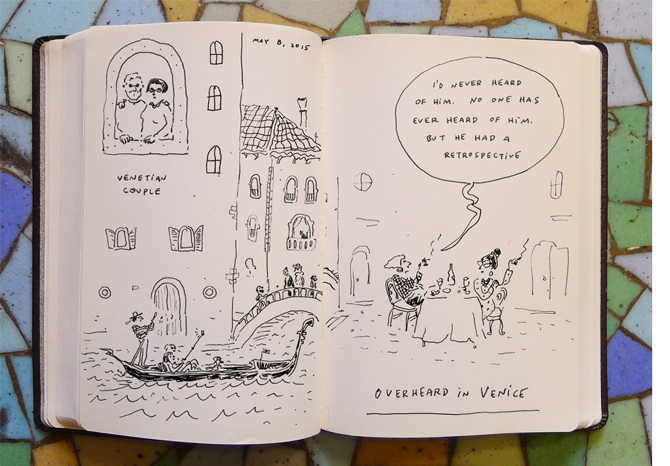 MAY 8, 2015
VENETIAN
COUPLE
I'D NEVER HEARD
OF HIM. NO ONE HAS
EVER HEARD OF HIM.
BUT HE HAD A
RETROSPECTIVE
OVERHEARD IN VENICE